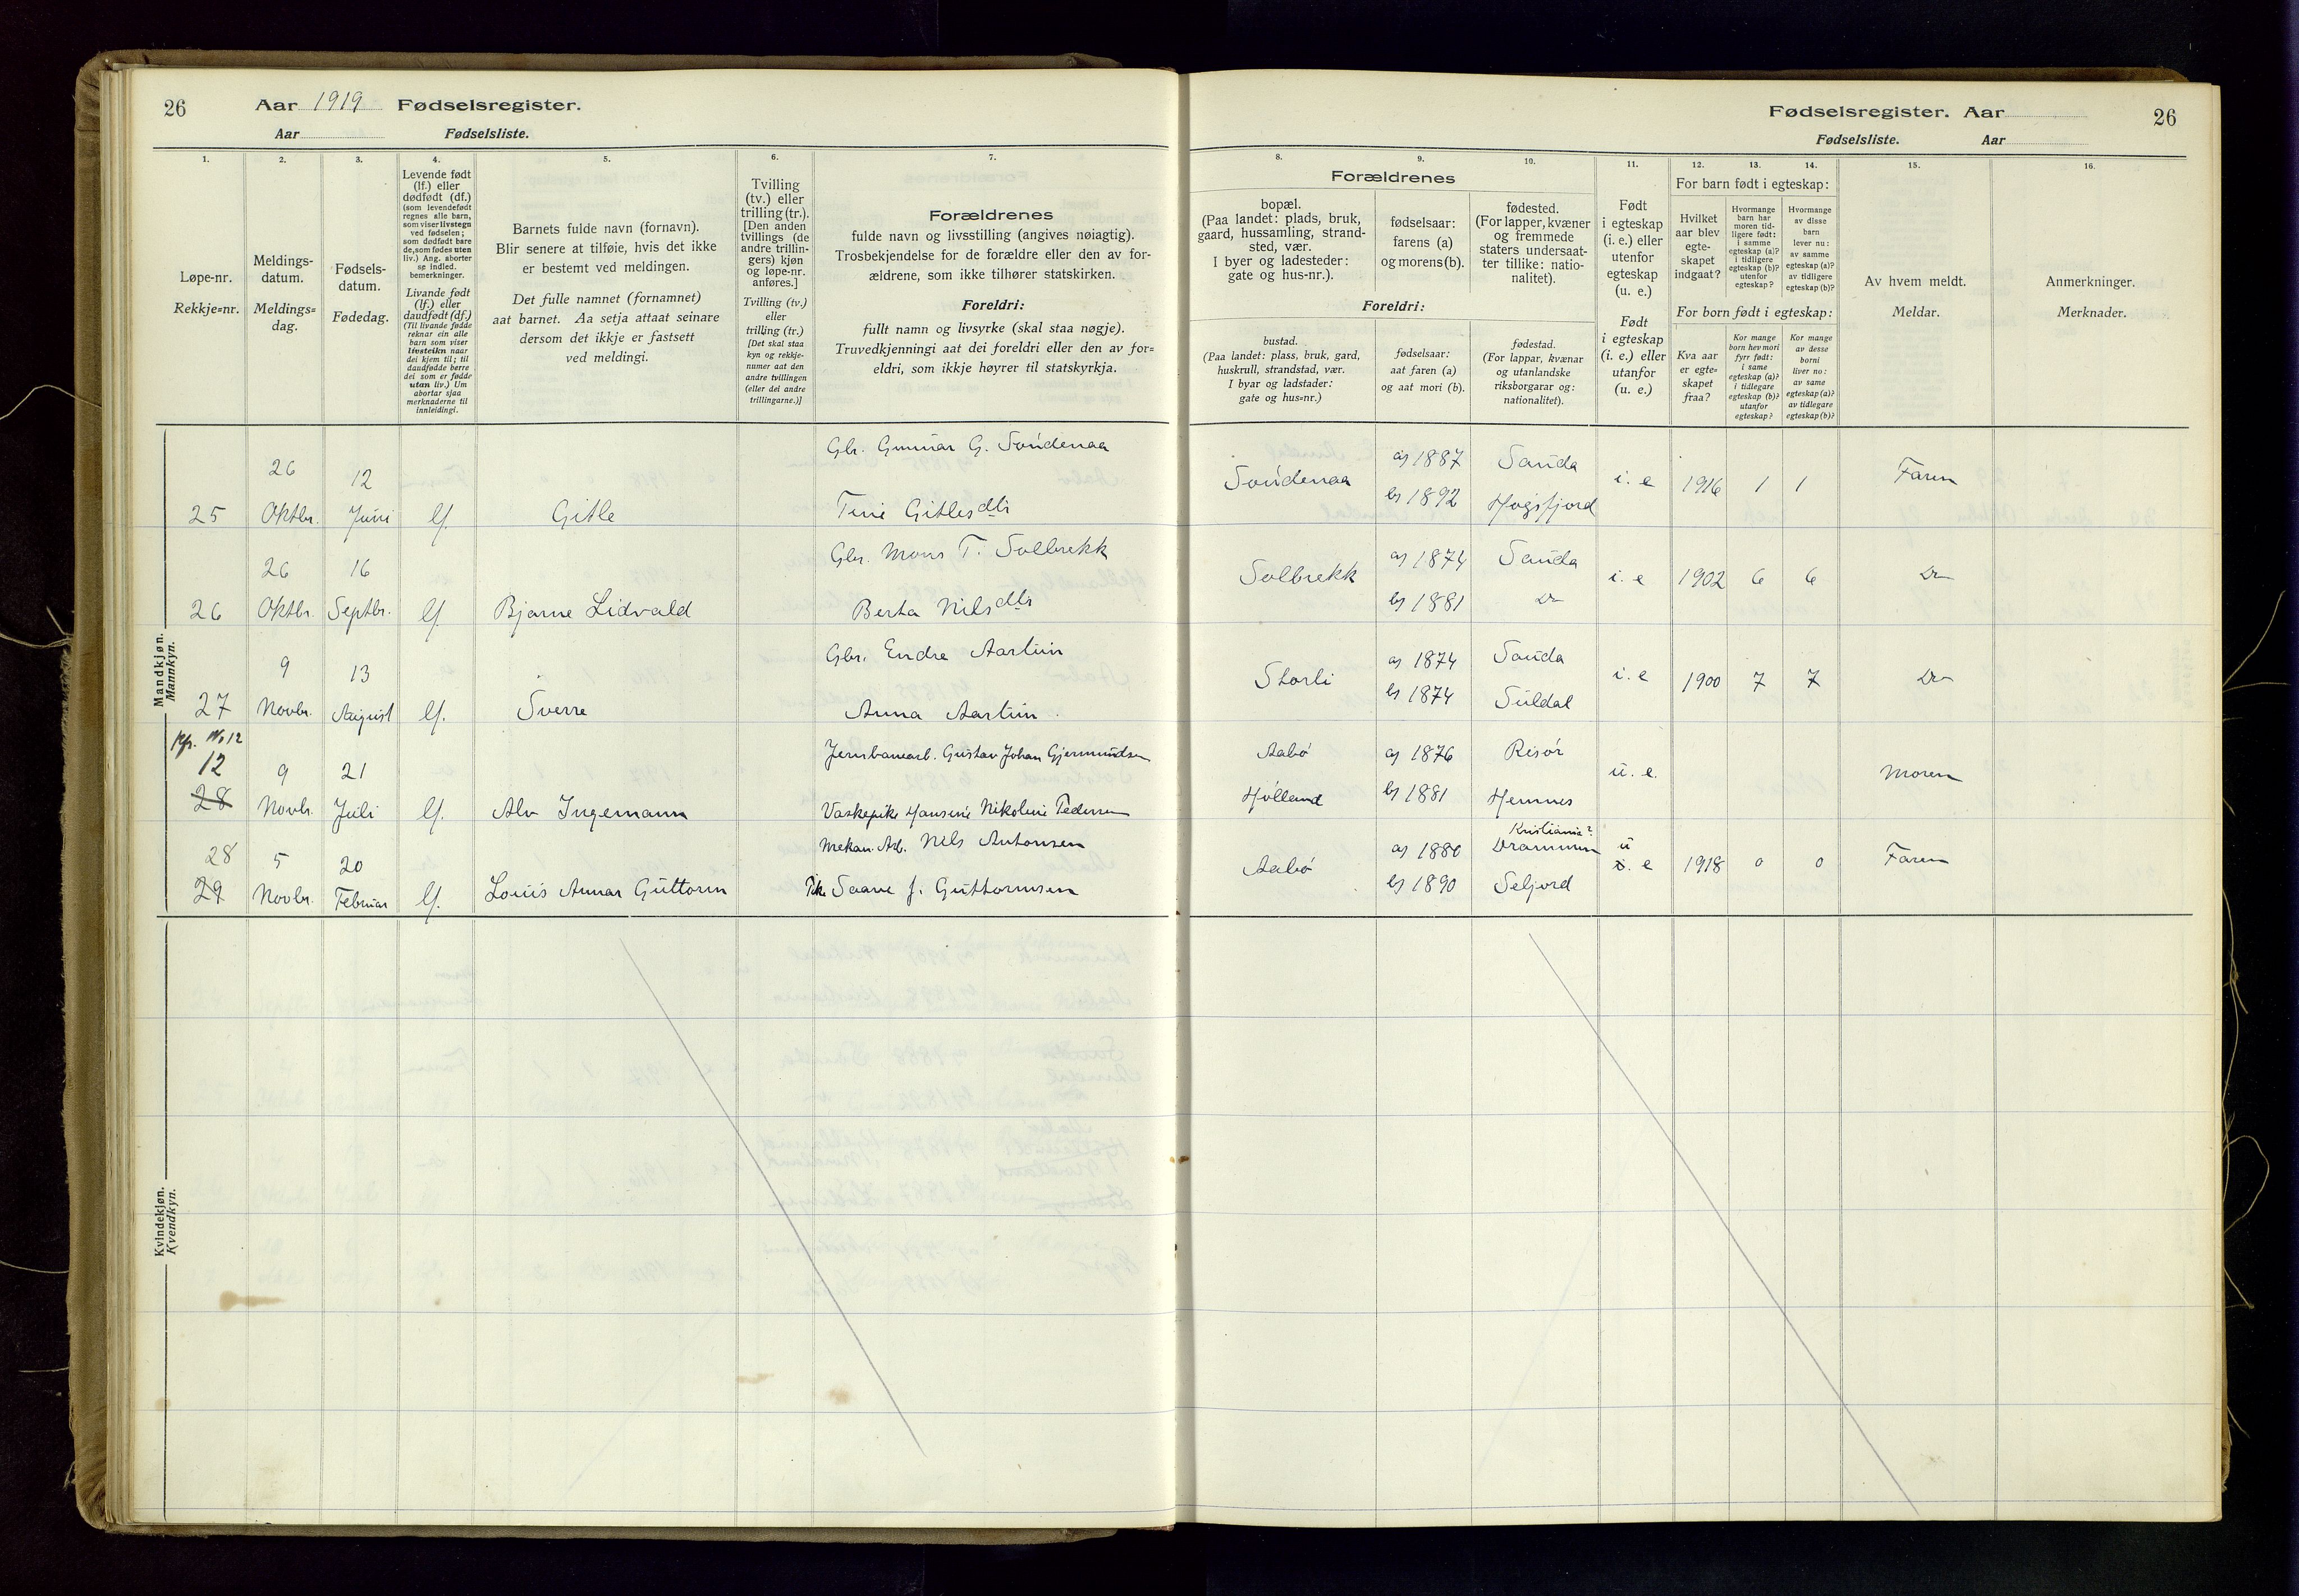 26 Aar 1919 Fødselsregister.
Aar Fødselsliste.
1.
Løpe-nr.
Rekkje=nr.
2.
Meldings-
datum.
Meldings=
dag.
3.
Fødsels-
datum.
Fødedag.
4.
Levende født
(lf.) eller
dødfødt (df.)
(som levendefødt
regnes alle barn,
som viser livstegn
ved fødselen;
som dødfødt bare
de, som fødes uten
liv.) Ang. aborter
se indled.
bemerkninger.
Livande født
(lf.) eller
daudfødt (df.)
(Til livande fødde
reknar ein alle
barn som viser
livsteikn naar
dei kjem til; til
daudfødde berre
dei som er fødde
utan liv.) Um
abortar sjaa
merknaderne til
innleidingi.
5.
Barnets fulde navn (fornavn).
Blir senere at tilføie, hvis det ikke
er bestemt ved meldingen.
Det fulle namnet (fornamnet)
aat barnet. Aa setja attaat seinare
dersom det ikkje er fastsett
ved meldingi.
6.
Tvilling
(tv.) eller
trilling (tr.).
[Den anden
tvillings (de
andre trillin-
gers) kjøn
og løpe-nr.
anføres.]
Tvilling (tv.)
eller
trilling (tr.)
[Det skal staa
kyn og rekkje-
numer aat den
andre tvillingen
(eller dei andre
trillingarne.)]
7.
Forældrenes
fulde navn og livsstilling (angives nøiagtig).
Trosbekjendelse for de forældre eller den av for-
ældrene, som ikke tilhører statskirken.
Foreldri:
fullt namn og livsyrke (skal staa nøgje).
Truvedkjenningi aat dei foreldri eller den av for=
eldri, som ikkje høyrer til statskyrkja.
Mandkjøn.
Mannkyn.
25 26 Oktbr. 12 Juni lf. Gitle
Gbr. Gunnar G. Søndenaa
Tine Gitlesdtr
26 26 Oktbr. 16 Septbr. lf. Bjarne Lidvald
Gbr. Mons T. Solbrekk
Berta Nilsdtr
27 9 Novbr. 13 August lf. Sverre
Gbr. Endre Aartun
Anna Aartun
No 12
12
28 9 Novbr. 21 Juli lf. Alv Ingemann
Jernbanearb. Gustav Johan Gjermundsen
Vaskepike Hansine Nikoline Pedersen
28
29 5 Novbr. 20 Februar lf. Louis Annar Guttorm
Mekan. Arb. Nils Antonsen
Pike Saave J. Guttormsen
Kvindekjøn.
Kvendkyn.
Fødselsregister. Aar 26
Fødselsliste. Aar
8.
Forældrenes
bopæl.
(Paa landet: plads, bruk,
gaard, hussamling, strand-
sted, vær.
I byer og ladesteder:
gate og hus-nr.).
9.
fødselsaar:
farens (a)
og morens (b).
10.
fødested.
(For lapper, kvæner
og fremmede
staters undersaat-
ter tillike: natio-
nalitet).
Foreldri:
bustad.
(Paa landet: plass, bruk, gard,
huskrull, strandstad, vær.
I byar og ladstader:
gate og hus=nr.)
fødselsaar:
aat faren (a)
og aat mori (b).
fødestad.
(For lappar, kvænar
og utanlandske
riksborgarar og:
nationalitet).
11.
Født
i egteskap
(i. e.) eller
utenfor
egteskap
(u. e.)
Født
i egteskap
(i. e.) eller
utanfor
(u. e.)
12.
13.
14.
For barn født i egteskap:
Hvilket
aar blev
egte-
skapet
indgaat?
Hvormange
barn har
moren tid-
ligere født:
i samme
egteskap (a)?
i tidligere
egteskap (b)?
utenfor
egteskap?
Hvormange
av disse
barn
lever nu:
av samme
egteskap (a)?
av tidligere
egteskap (b)?
For born født i egteskap:
Kva aar
er egte=
skapet
fraa?
Kor mange
born hev mori
fyrr født:
i same
egteskap (a)?
i tidlegare
egteskap (b)?
utanfor
egteskap?
Kor mange
av desse
borni
liver no:
av same
egteskap (a)?
av tidlegare
egteskap (b)?
15.
Av hvem meldt.
Meldar.
16.
Anmerkninger.
Merknader.
Søndenaa a) 1887 Sauda i. e 1916 1 1 Faren
b) 1892 Høgsfjord
Solbrekk a) 1874 Sauda i. e 1902 6 6 Do
b) 1881 Do
Storli a) 1874 Sauda i. e 1900 7 7 Do
b) 1874 Suldal
Aabø a) 1876 Risør u. e. Moren
Hølland b) 1881 Hemnes
Kristiania?
Aabø a) 1880 Drammen u
i. e 1918 0 0 Faren
b) 1890 Seljord